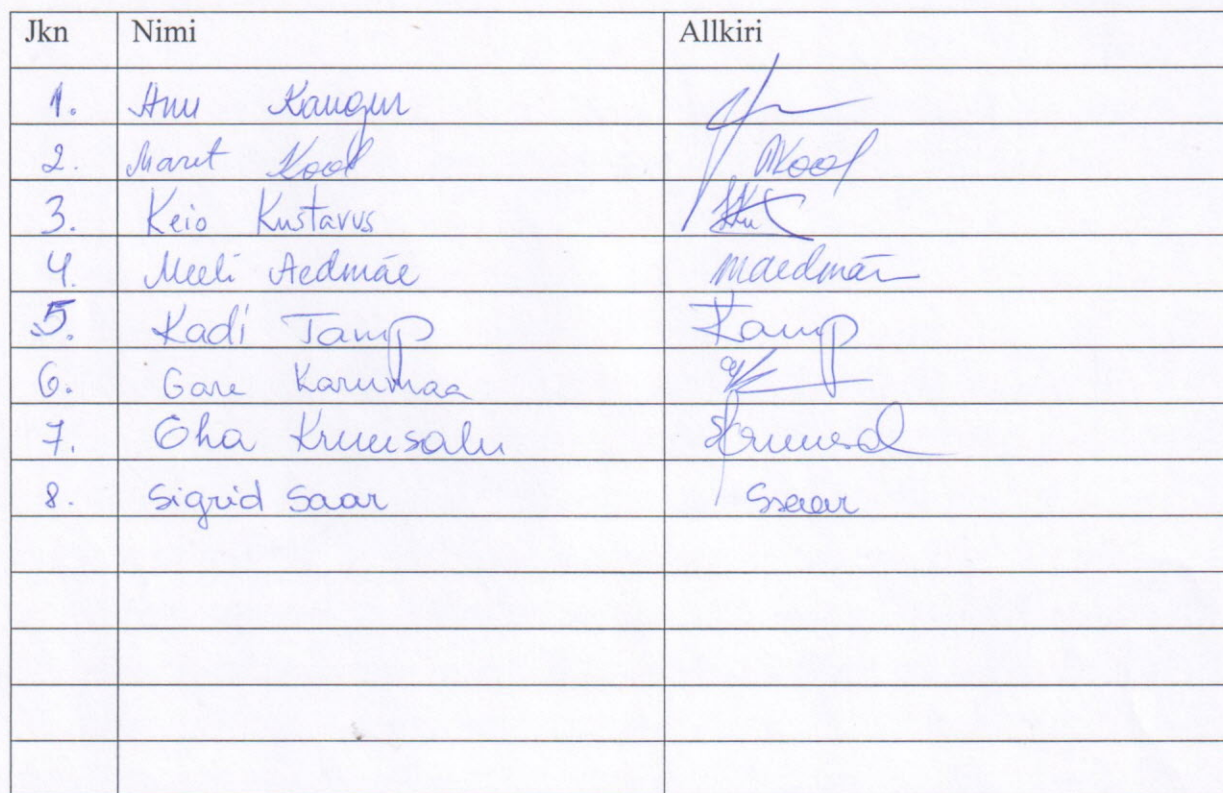 Jkn Nimi Allkiri
1. Anu Kangur
2. Maret Kool MKool
3. Keio Kustavus
4. Meeli Aedmäe maedmäe
5. Kadi Tamp Kamp
6. Gare Karumaa
7. Eha Kruusalu
8. Sigrid Saar Ssaar